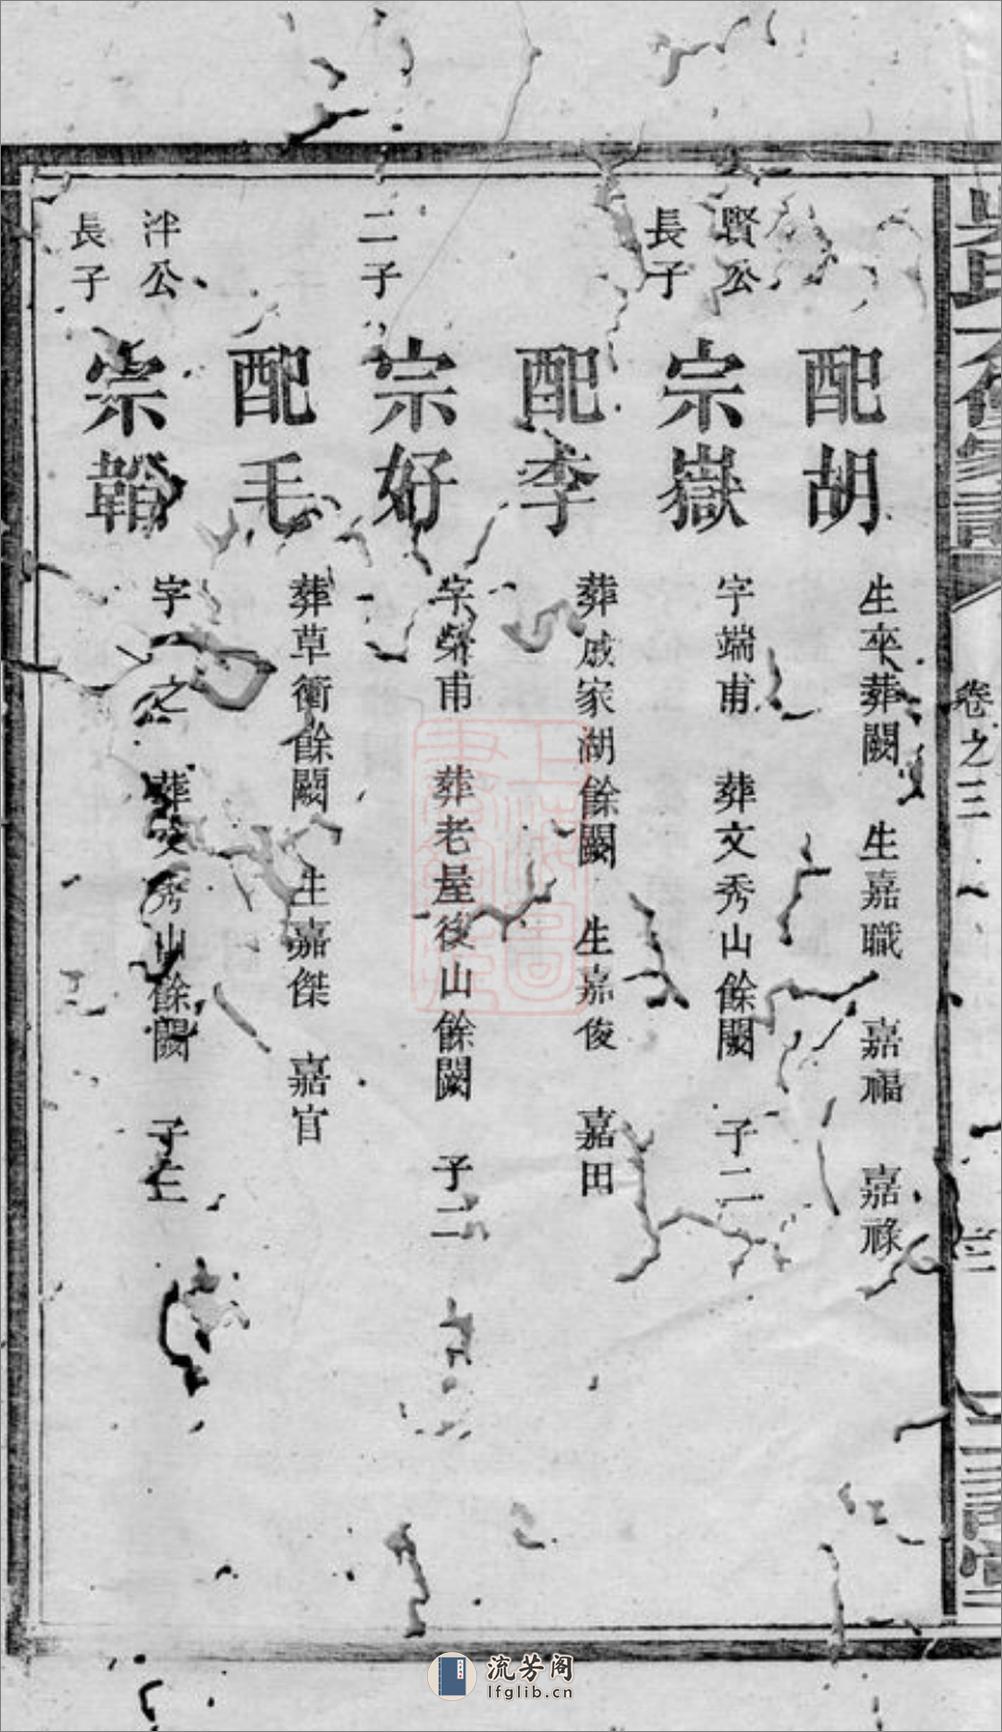 卷之三
配胡 生卒葬闕 生嘉職 嘉福 嘉祿
賢公長子 宗嶽 字端甫 葬文秀山餘闕 子二
配李 葬戚家湖餘闕 生嘉俊 嘉田
二子 宗好 字榮甫 葬老屋後山餘闕 子二
配毛 葬草衝餘闕 生嘉傑 嘉官
泮公長子 宗韜 字之 葬文秀山餘闕 子三
流芳阁
lfglib.cn